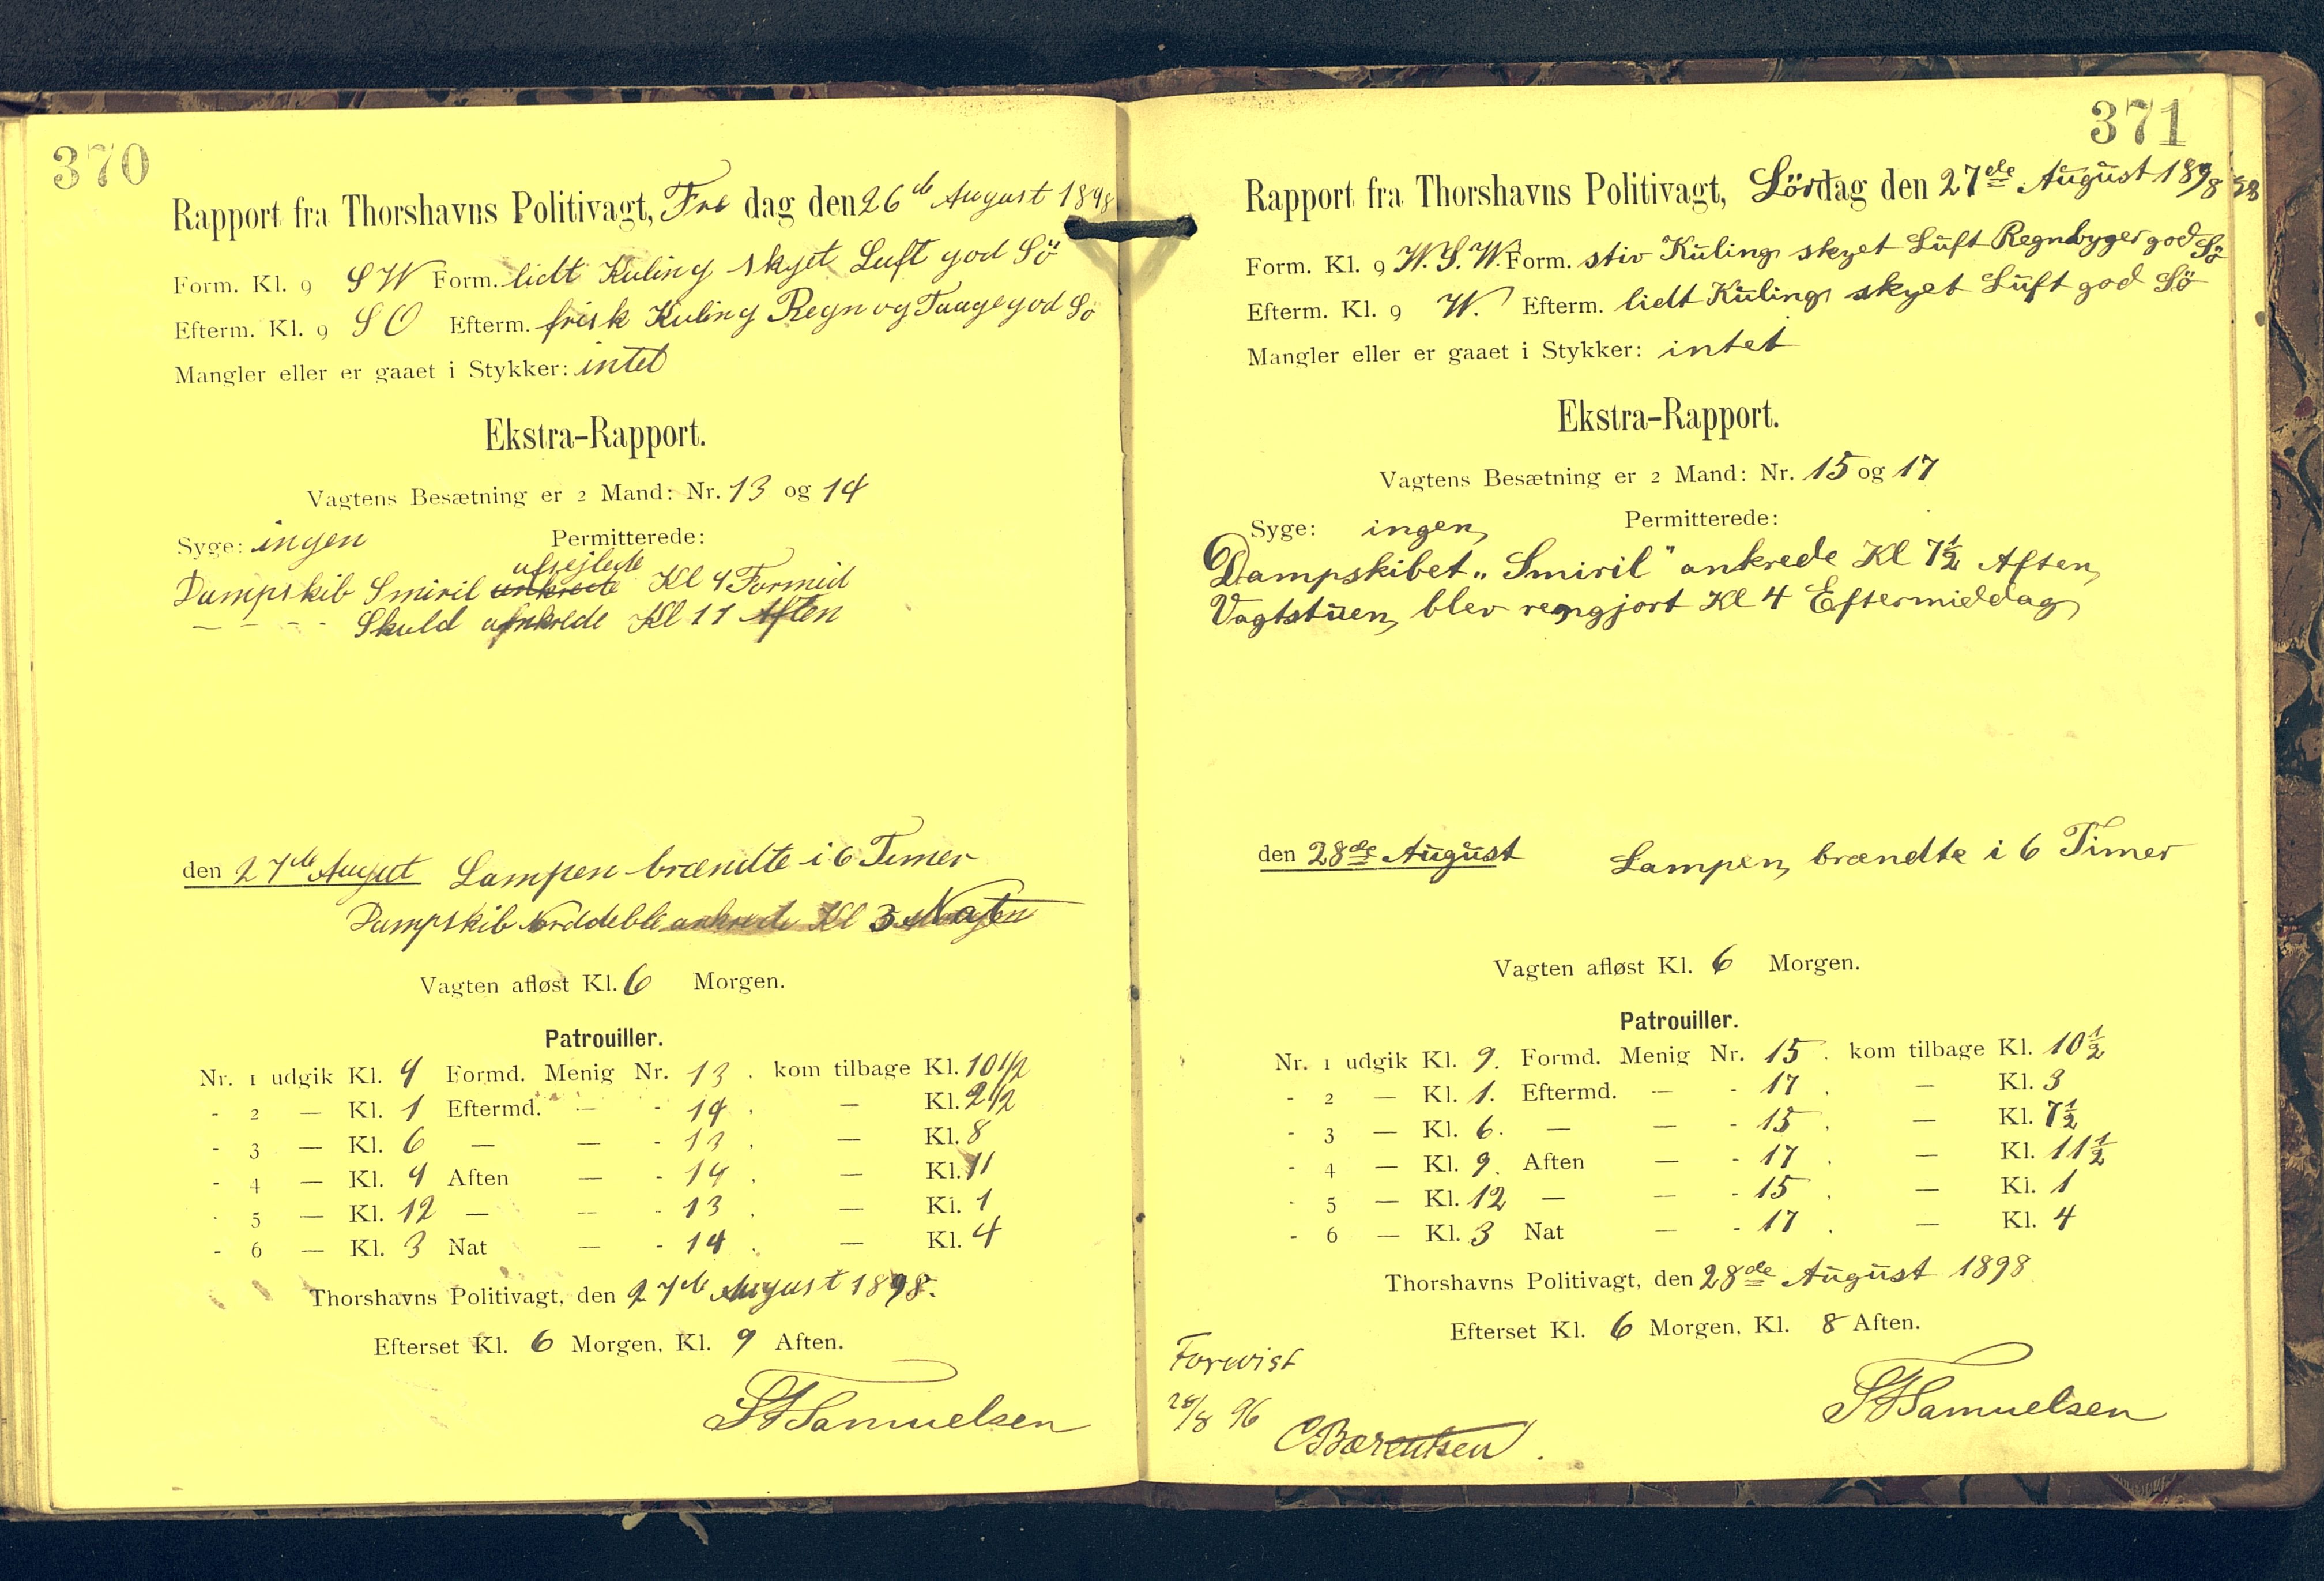 370
Rapport fra Thorshavns Politivagt, Fre dag den 26de August 1898
Form. Kl. 9 SW Form. lidt Kuling skyet Luft god Sö
Efterm. Kl. 9 SO Efterm. frisk Kuling Regn og Taage god Sö
Mangler eller er gaaet i Stykker: intet
Ekstra-Rapport.
Vagtens Besætning er 2 Mand: Nr. 13 og 14
Syge: ingen Permitterede:
afsejlede
Dampskib Smiril ankrede Kl 4 Formid
— - - - Skuld ankrede Kl 11 Aften
den 27de August Lampen brændte i 6 Timer
Dampskib ankrede Kl 3
Vagten afløst Kl. 6 Morgen.
Patrouiller.
Nr. 1 udgik Kl. 9 Formd. Menig Nr. 13 . kom tilbage Kl. 10 1/2
- 2 — Kl. 1 Eftermd. — - 14 . — Kl. 2 1/2
- 3 — Kl. 6 — — - 13 . — Kl. 8
- 4 — Kl. 9 Aften — - 14 . — Kl. 11
- 5 — Kl. 12 — — - 13 . — Kl. 1
- 6 — Kl. 3 Nat — - 14 . — Kl. 4
Thorshavns Politivagt, den 27de August 1898.
Efterset Kl. 6 Morgen, Kl. 9 Aften.
Samuelsen
371
Rapport fra Thorshavns Politivagt, Lördag den 27de August 1898 98
Form. Kl. 9 W.S.W. Form. stiv Kuling skyet Luft Regnbyger god Sö
Efterm. Kl. 9 W. Efterm. lidt Kuling skyet Luft god Sö
Mangler eller er gaaet i Stykker: intet
Ekstra-Rapport.
Vagtens Besætning er 2 Mand: Nr. 15 og 17
Syge: ingen Permitterede:
Dampskibet „Smiril" ankrede Kl 7 1/2 Aften
Vagtstuen blev rengjort Kl 4 Eftermiddag
den 28de August Lampen brændte i 6 Timer
Vagten afløst Kl. 6 Morgen.
Patrouiller.
Nr. 1 udgik Kl. 9. Formd. Menig Nr. 15 . kom tilbage Kl. 10 1/2
- 2 — Kl. 1. Eftermd. — - 17 . — Kl. 3
- 3 — Kl. 6. — — - 15 . — Kl. 7 1/2
- 4 — Kl. 9. Aften — - 17 . — Kl. 11 1/2
- 5 — Kl. 12 — — - 15 . — Kl. 1
- 6 — Kl. 3 Nat — - 17 . — Kl. 4
Thorshavns Politivagt, den 28de August 1898
Efterset Kl. 6 Morgen, Kl. 8 Aften.
Forevist
28/8 96
CBærentsen.
Samuelsen